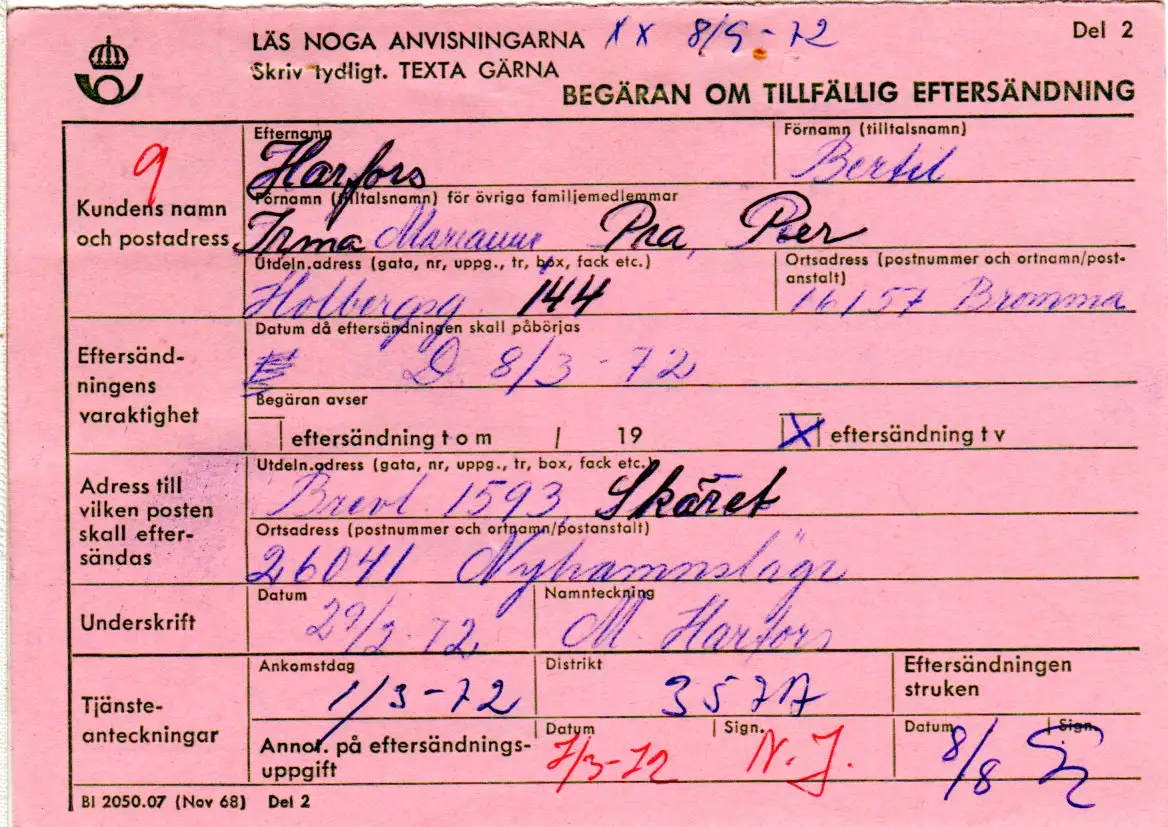 LÄS NOGA ANVISNINGARNA XX 8/9-72 Del 2
Skriv tydligt. TEXTA GÄRNA
BEGÄRAN OM TILLFÄLLIG EFTERSÄNDNING
9
Kundens namn
och postadress
Efternamn Förnamn (tilltalsnamn)
Harfors Bertil
Förnamn (tilltalsnamn) för övriga familjemedlemmar
Irma Marianne Pia, Per
Utdeln.adress (gata, nr, uppg., tr, box, fack etc.) Ortsadress (postnummer och ortnamn/post-
anstalt)
Holbergsg. 144 16157 Bromma
Eftersänd-
ningens
varaktighet
Datum då eftersändningen skall påbörjas
D 8/3-72
Begäran avser
eftersändning t o m / 19 X eftersändning t v
Adress till
vilken posten
skall efter-
sändas
Utdeln.adress (gata, nr, uppg., tr, box, fack etc.)
Brevl. 1593, Skäret
Ortsadress (postnummer och ortnamn/postanstalt)
26041 Nyhamnsläge
Underskrift
Datum Namnteckning
29/2-72 M. Harfors
Tjänste-
anteckningar
Ankomstdag Distrikt Eftersändningen
struken
1/3-72 357A
Annot. på eftersändnings-
uppgift
Datum Sign. Datum Sign.
7/3-72 N.J. 8/8
BI 2050.07 (Nov 68) Del 2